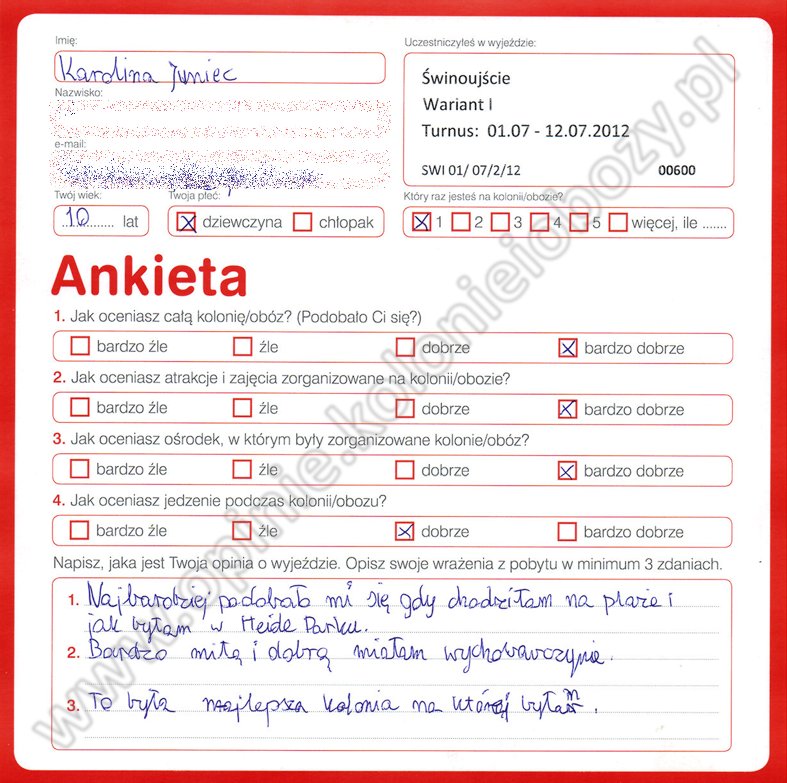 Imię:
Karolina Juniec
Nazwisko:
e-mail:
Twój wiek:
10 lat
Twoja płeć:
dziewczyna chłopak
Uczestniczyłeś w wyjeździe:
Świnoujście
Wariant I
Turnus: 01.07 - 12.07.2012
SWI 01/ 07/2/12 00600
Który raz jesteś na kolonii/obozie?
1 2 3 4 5 więcej, ile .......
Ankieta
1. Jak oceniasz całą kolonię/obóz? (Podobało Ci się?)
bardzo źle źle dobrze bardzo dobrze
2. Jak oceniasz atrakcje i zajęcia zorganizowane na kolonii/obozie?
bardzo źle źle dobrze bardzo dobrze
3. Jak oceniasz ośrodek, w którym były zorganizowane kolonie/obóz?
bardzo źle źle dobrze bardzo dobrze
4. Jak oceniasz jedzenie podczas kolonii/obozu?
bardzo źle źle dobrze bardzo dobrze
Napisz, jaka jest Twoja opinia o wyjeździe. Opisz swoje wrażenia z pobytu w minimum 3 zdaniach.
1. Najbardziej podobało mi się gdy chodziłam na plaże i
jak byłam w Heide Parku.
2. Bardzo miłą i dobrą miałam wychowawczynie.
3. To była najlepsza kolonia na której byłam.
www.opinie.kolonieiobozy.pl